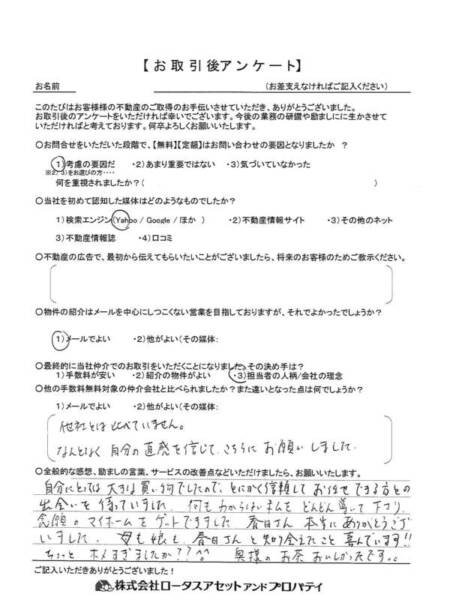 【お取引後アンケート】
お名前
(お差支えなければご記入ください)
このたびはお客様様の不動産のご取得のお手伝いさせていただき、ありがとうございました。
お取引後のアンケートをいただければ幸いでございます。今後の業務の研鑽や励ましにに生かさせて
いただければと考えております。何卒よろしくお願いいたします。
○お問合せをいただいた段階で、【無料】【定額】はお問い合わせの要因となりましたか ?
1)考慮の要因だ ・2)あまり重要ではない ・3)気づいていなかった
※2)、3)をお選びの方・・・・
何を重視されましたか?( )
○当社を初めて認知した媒体はどのようなものでしたか?
1)検索エンジン(Yahoo / Google / ほか ) ・2)不動産情報サイト ・3)その他のネット
3)不動産情報誌 ・4)口コミ
○不動産の広告で、最初から伝えてもらいたいことがございましたら、将来のお客様のためご教示ください。
○物件の紹介はメールを中心にしつこくない営業を目指しておりますが、それでよかったでしょうか?
1)メールでよい ・2)他がよい(その媒体:
○最終的に当社仲介でのお取引をいただくことになりました。その決め手は?
1)手数料が安い ・2)紹介の物件がよい ・3)担当者の人柄/会社の理念
○他の手数料無料対象の仲介会社と比べられましたか?また違いとなった点は何でしょうか?
1)メールでよい ・2)他がよい(その媒体:
他社とは比べていません。
なんとなく自分の直感を信じて、こちらにお願いしました。
○全般的な感想、励ましの言葉、サービスの改善点などいただけましたら、お願いいたします。
自分にとっては大きな買い物でしたので、とにかく信頼してお任せできる方との
出会いを待っていました。何もわからないまんをどんどん導いて下さり、
念願のマイホームをゲットできました。春日さん本当にありがとうござ
いました。母も娘も、春日さんと知り合えたこと喜んでいます!!
ちょっとホメすぎましたか??^^ 奥様のお茶おいしかったです。
ご記入いただきありがとうございました!
株式会社ロータスアセットアンドプロパティ